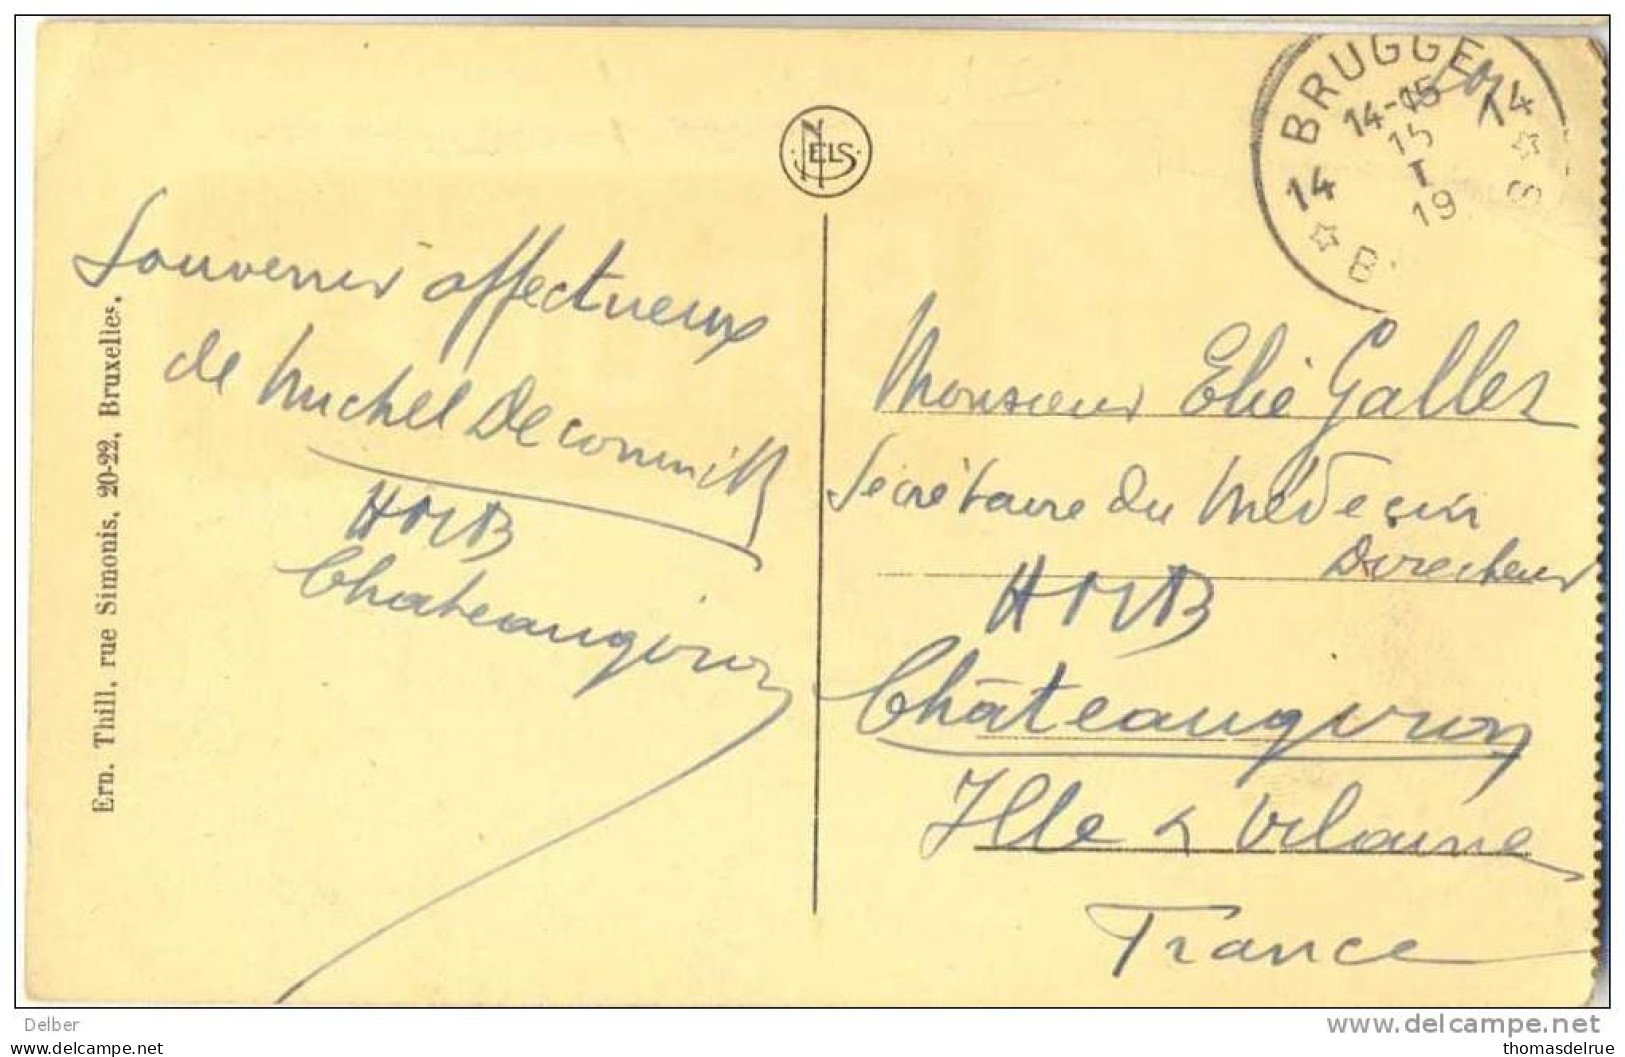 BRUGGE
14-15
14
14
15
I
19
B
S
NELS
Souvenir affectueux
de Michel
HMB
Chateaugiron
Ern. Thill, rue Simonis, 20-22, Bruxelles.
Monsieur Elie Galles
Secrétaire du Médecin
Directeur
HMB
Châteaugiron
Ille & Vilaine
France
Delber
www.delcampe.net
thomasdelrue